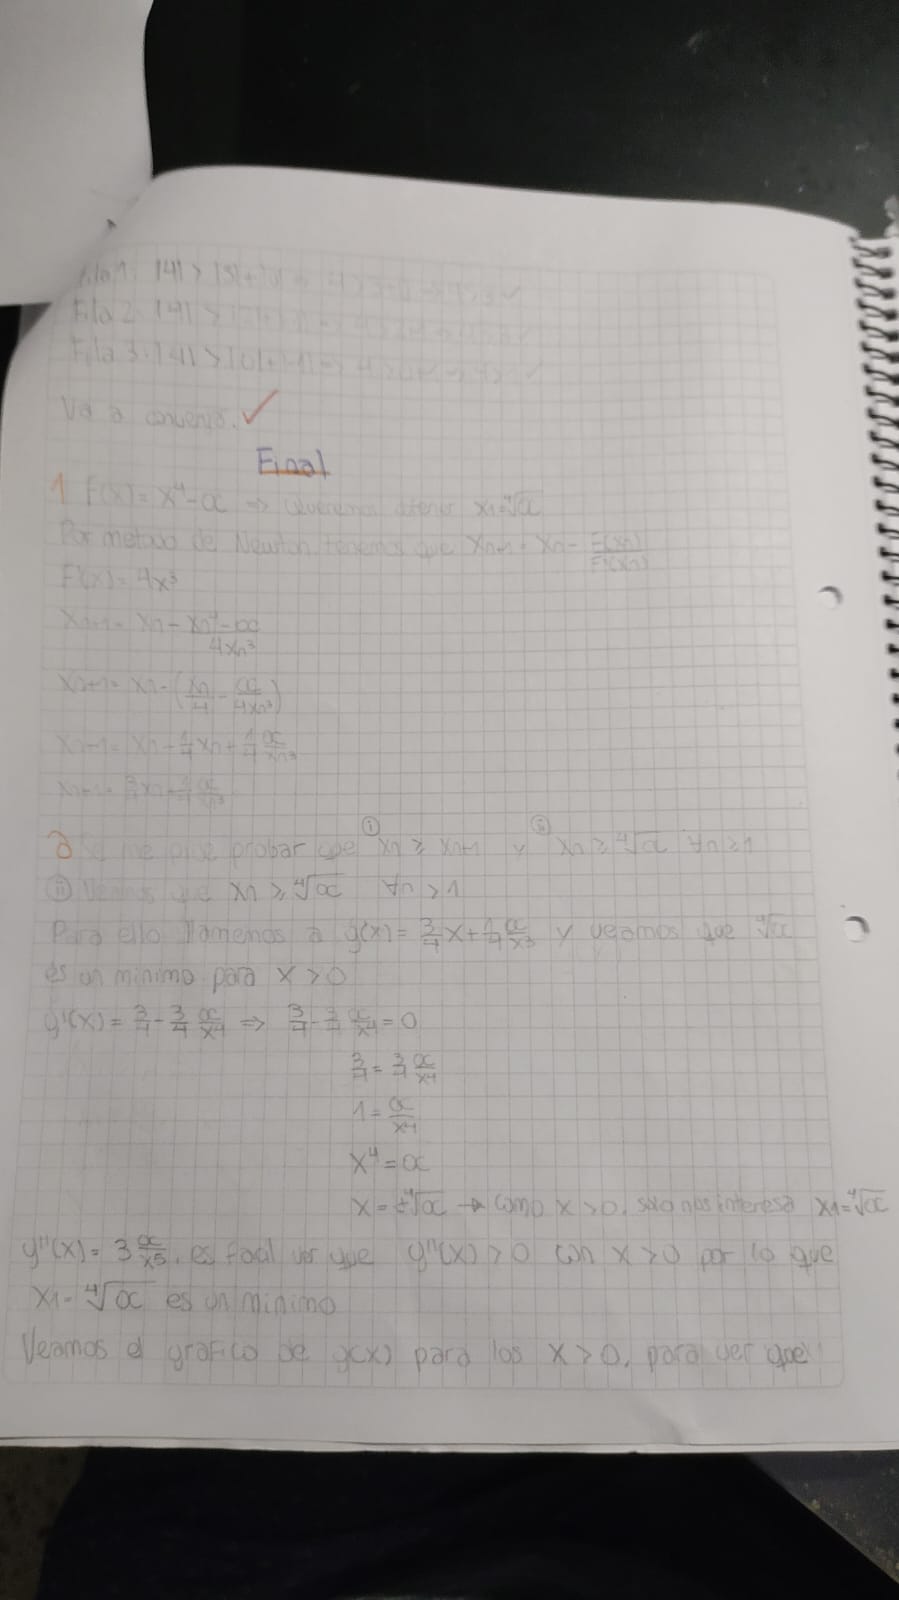 Fila 1: |4| >
Fila 2: |4| >
Fila 3: |4| > |0|+|-1| =>
Va a converger. ✓
Final
1 F(x) = x⁴ - α => Queremos obtener x₁ = ⁴√α
Por metodo de Newton tenemos que xn+1 = xn - F(xn)/F'(xn)
F'(x) = 4x³
xn+1 = xn - (xn⁴ - α)/4xn³
xn+1 = xn - (xn/4 - α/4xn³)
xn+1 = xn - 1/4 xn + 1/4 α/xn³
xn+1 = 3/4 xn + 1/4 α/xn³
2 Se me pide probar que (i) xn ≥ xn+1 y (ii) xn ≥ ⁴√α ∀n ≥ 1
(ii) Veamos que xn ≥ ⁴√α ∀n ≥ 1
Para ello llamemos a g(x) = 3/4 x + 1/4 α/x³ y veamos que ⁴√α
es un minimo para x > 0
g'(x) = 3/4 - 3/4 α/x⁴ => 3/4 - 3/4 α/x⁴ = 0
3/4 = 3/4 α/x⁴
1 = α/x⁴
x⁴ = α
x = ±⁴√α → como x > 0, solo nos interesa x₁ = ⁴√α
g''(x) = 3 α/x⁵, es facil ver que g''(x) > 0 con x > 0 por lo que
x₁ = ⁴√α es un minimo
Veamos el grafico de g(x) para los x > 0, para ver que